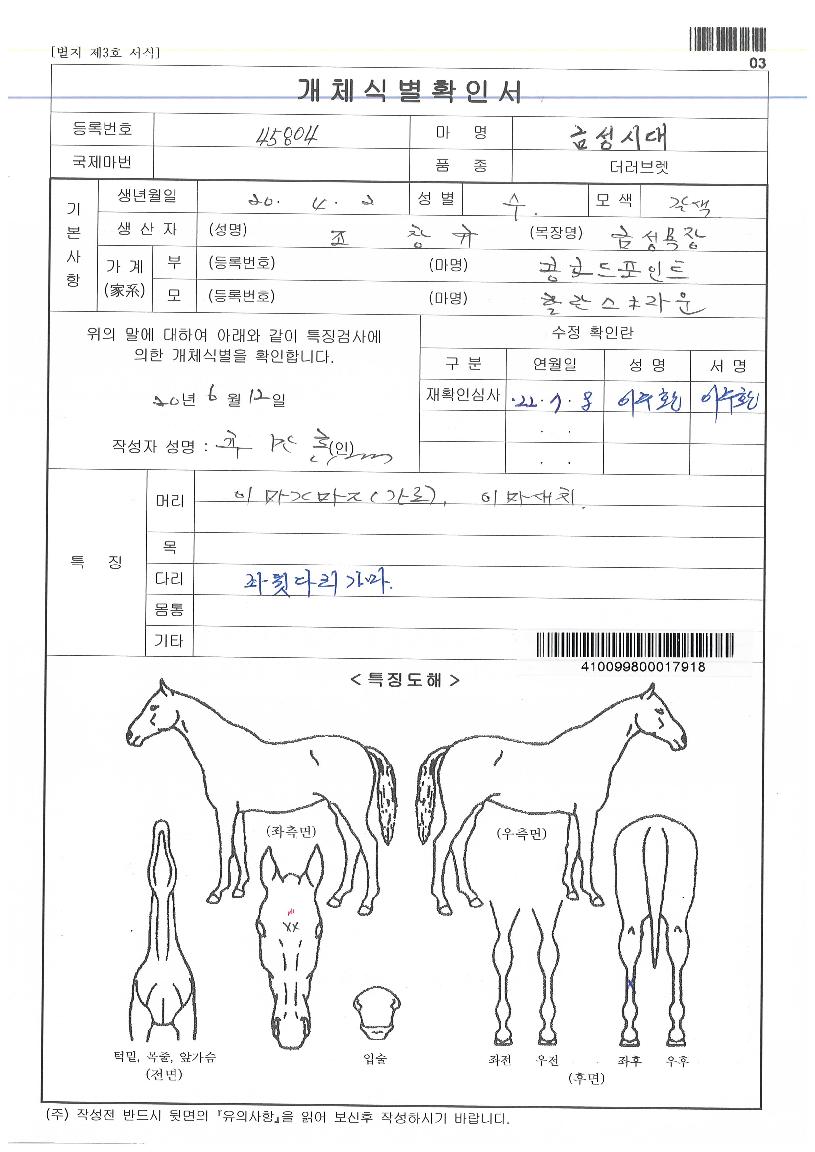 [별지 제3호 서식]
03
개체식별확인서
등록번호 45804 마 명 금성시대
국제마번 품 종 더러브렛
기본사항
생년월일 20. 4. 2 성별 수. 모색 갈색
생산자 (성명) 조창규 (목장명) 금성목장
가계(家系) 부 (등록번호) (마명) 콩코드포인트
모 (등록번호) (마명)
위의 말에 대하여 아래와 같이 특징검사에 의한 개체식별을 확인합니다.
20년 6월 12일
작성자 성명 : (인)
수정 확인란
구분 연월일 성명 서명
재확인심사 '22. 7. 8 이주환 이주환
. .
. .
특 징
머리 이마가마즈(가로), 이마새치.
목
다리 좌뒷다리가마.
몸통
기타
410099800017918
< 특징도해 >
(좌측면) (우측면)
XX
x
턱밑, 목줄, 앞가슴 입술 좌전 우전 좌후 우후
(전면) (후면)
(주) 작성전 반드시 뒷면의 『유의사항』을 읽어 보신후 작성하시기 바랍니다.